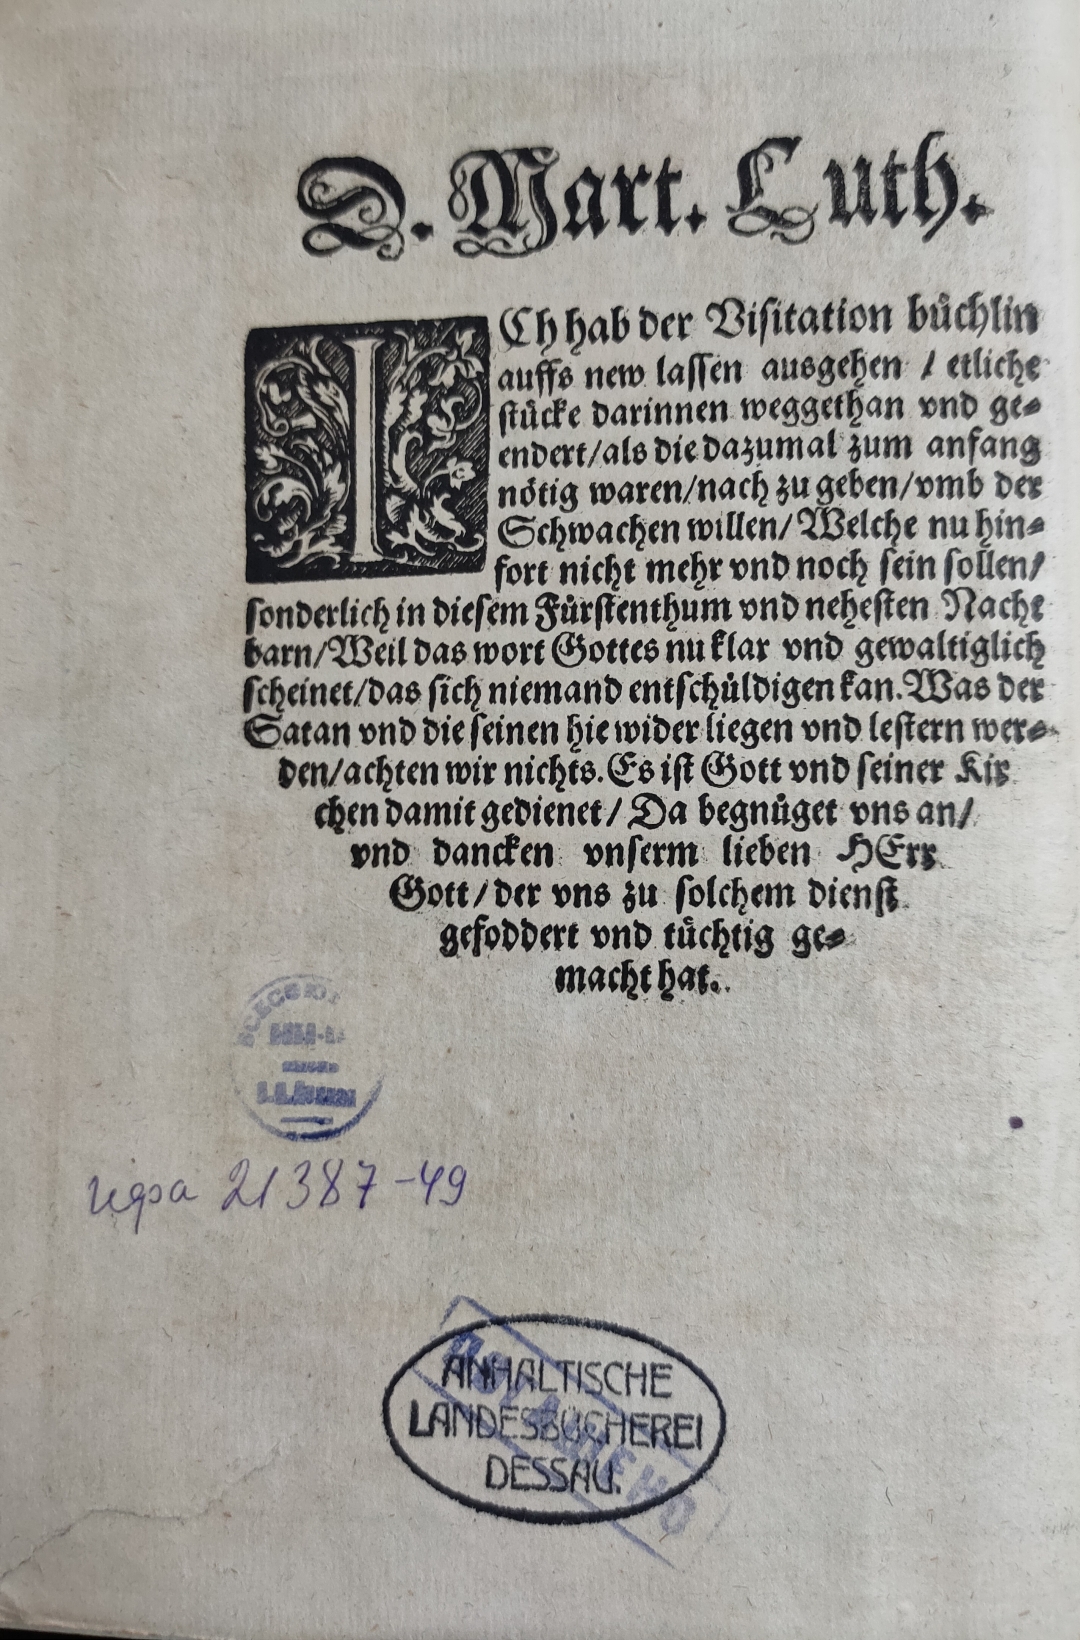 D. Mart. Luth.
ICh hab der Visitation büchlin
auffs new lassen ausgehen / etliche
stücke darinnen weggethan vnd ge⸗
endert/als die dazumal zum anfang
nötig waren/nach zu geben/vmb der
Schwachen willen/Welche nu hin⸗
fort nicht mehr vnd noch sein sollen/
sonderlich in diesem Fürstenthum vnd nehesten Nacht
barn/Weil das wort Gottes nu klar vnd gewaltiglich
scheinet/das sich niemand entschüldigen kan.Was der
Satan vnd die seinen hie wider liegen vnd lestern wer⸗
den/achten wir nichts.Es ist Gott vnd seiner Kir
chen damit gedienet/Da begnüget vns an/
vnd dancken vnserm lieben HErr
Gott/der vns zu solchem dienst
gefoddert vnd tüchtig ge⸗
macht hat.
21387-49
ANHALTISCHE
LANDESBÜCHEREI
DESSAU.